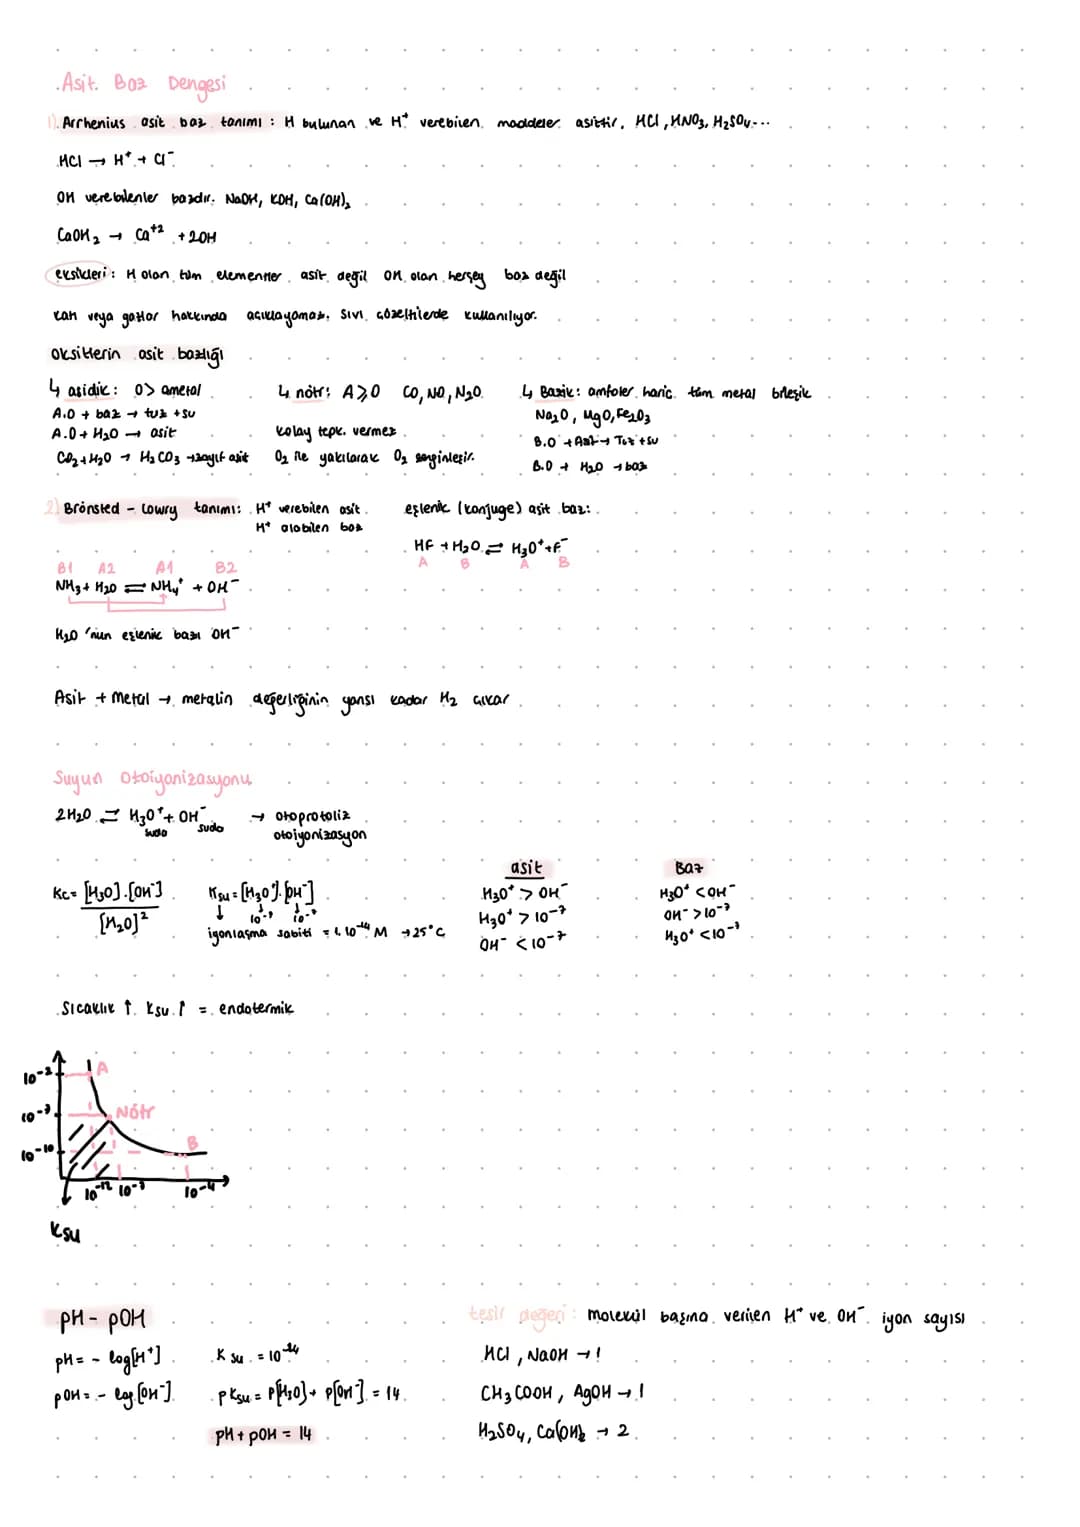 Asit Baz Dengesi
1) Arrhenius asit baz tanımı : H bulunan ve H⁺ verebilen maddeler asittir. HCl, HNO₃, H₂SO₄...
HCl → H⁺ + Cl⁻
OH verebilenler bazdır. NaOH, KOH, Ca(OH)₂
CaOH₂ → Ca⁺² + 2OH
eksikleri : H olan tüm elementler asit değil OH olan herşey baz değil
katı veya gazlar hakkında açıklayamaz. Sıvı çözeltilerde kullanılıyor.
Oksitlerin asit bazlığı
↳ asidik : O> ametal
A.O + baz → tuz + su
A.O + H₂O → asit
CO₂ + H₂O → H₂CO₃ → zayıf asit
↳ nötr : A ⩾ O CO, NO, N₂O
kolay tepk. vermez
O₂ ile yakılarak O₂ zenginleşir.
↳ Bazik : amfoter hariç tüm metal bileşik
Na₂O, MgO, Fe₂O₃
B.O + Asit → Tuz + su
B.O + H₂O → baz
2) Brönsted - Lowry tanımı: H⁺ verebilen asit
H⁺ alabilen baz
eşlenik (konjuge) asit baz :
HF + H₂O ⇌ H₃O⁺ + F⁻
A B A B
B1 A2 A1 B2
NH₃ + H₂O ⇌ NH₄⁺ + OH⁻
H₂O 'nun eşlenik bazı OH⁻
Asit + Metal → metalin değerliğinin yarısı kadar H₂ çıkar
Suyun Otoiyonizasyonu
2H₂O ⇌ H₃O⁺ + OH⁻ → otoprotoliz
suda suda otoiyonizasyon
Kc = [H₃O].[OH⁻]
[H₂O]²
Ksu = [H₃O⁺].[OH⁻]
↓ ↓ ↓
10⁻⁷ 10⁻⁷
iyonlaşma sabiti = 1.10⁻¹⁴ M → 25°C
asit
H₃O⁺ > OH⁻
H₃O⁺ > 10⁻⁷
OH⁻ < 10⁻⁷
Baz
H₃O⁺ < OH⁻
OH⁻ > 10⁻⁷
H₃O⁺ < 10⁻⁷
Sıcaklık ↑ Ksu ↑ = endotermik
10⁻² A
10⁻⁷ Nötr
10⁻¹⁰ B
10⁻¹² 10⁻⁷ 10⁻⁴
Ksu
pH - pOH
pH = - log[H⁺]
pOH = - log[OH⁻]
Ksu = 10⁻¹⁴
pKsu = p[H₃O] + p[OH⁻] = 14
pH + pOH = 14
tesir değeri : molekül başına verilen H⁺ ve OH⁻ iyon sayısı
HCl, NaOH → 1
CH₃COOH, AgOH → 1
H₂SO₄, Ca(OH)₂ → 2